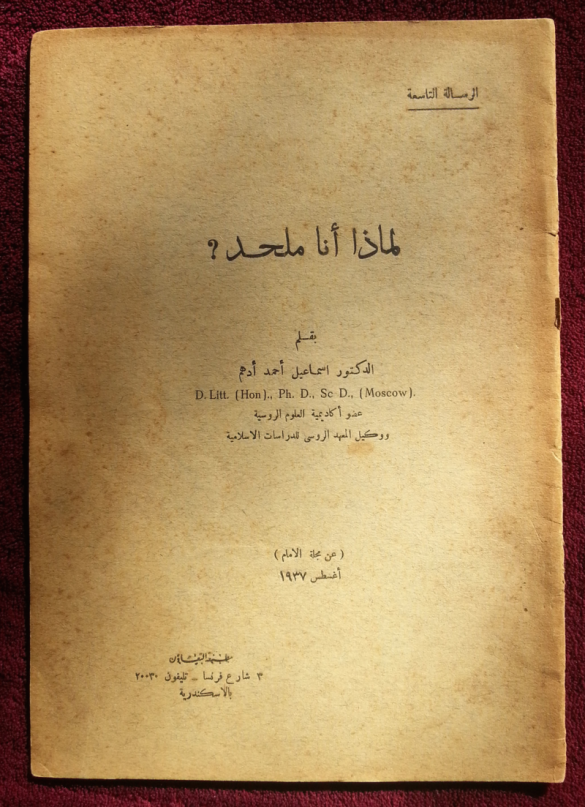 الرسالة التاسعة
لماذا أنا ملحد ؟
بقلم
الدكتور اسماعيل أحمد أدهم
D. Litt. (Hon)., Ph. D., Sc D., (Moscow).
عضو أكاديمية العلوم الروسية
ووكيل المعهد الروسى للدراسات الاسلامية
( عن مجلة الامام )
أغسطس ١٩٣٧
مطبعة التعاون
٣ شارع فرنسا _ تليفون ٢٠٠٣٠
بالاسكندرية